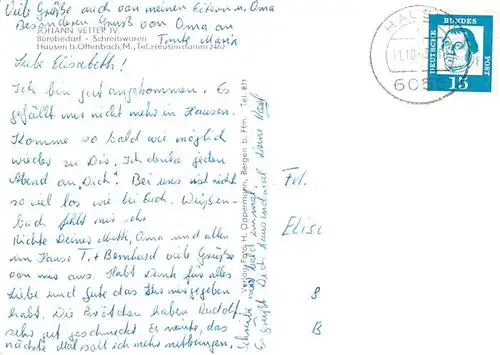 Viele Grüße auch von meinen Eltern u. Oma
Besonderen Gruß von Oma an
Tante Maria
JOHANN VETTER IV.
Bürobedarf - Schreibwaren
Hausen b. Offenbach/M., Tel. Heusenstamm 2467
Liebe Elisabeth!
Ich bin gut angekommen. Es
gefällt mir nicht mehr in Hausen.
Komme so bald wie möglich
wieder zu Dir. Ich denke jeden
Abend an "Dich". Bei uns ist nicht
so viel los wie bei Euch. Weißen-
bach fehlt mir sehr
Richte Deiner Mutti, Oma und allen
im Hause T. + Bernhard viele Grüße
von mir aus. Habt Dank für alles
Liebe und Gute das Ihr mir gegeben
habt. Die Brötchen haben Rudolf
sehr gut geschmeckt. Er meinte, das
nächste Mal soll ich mehr mitbringen.
Schreibe mir bald einmal.
Es grüßt Dich tausend mal Deine
Verlag Foto H. Oppermann, Bergen b. Ffm. Tel. 871
HAUS
11.10.
605
DEUTSCHE BUNDESPOST
15
Frl.
Elis
S
B